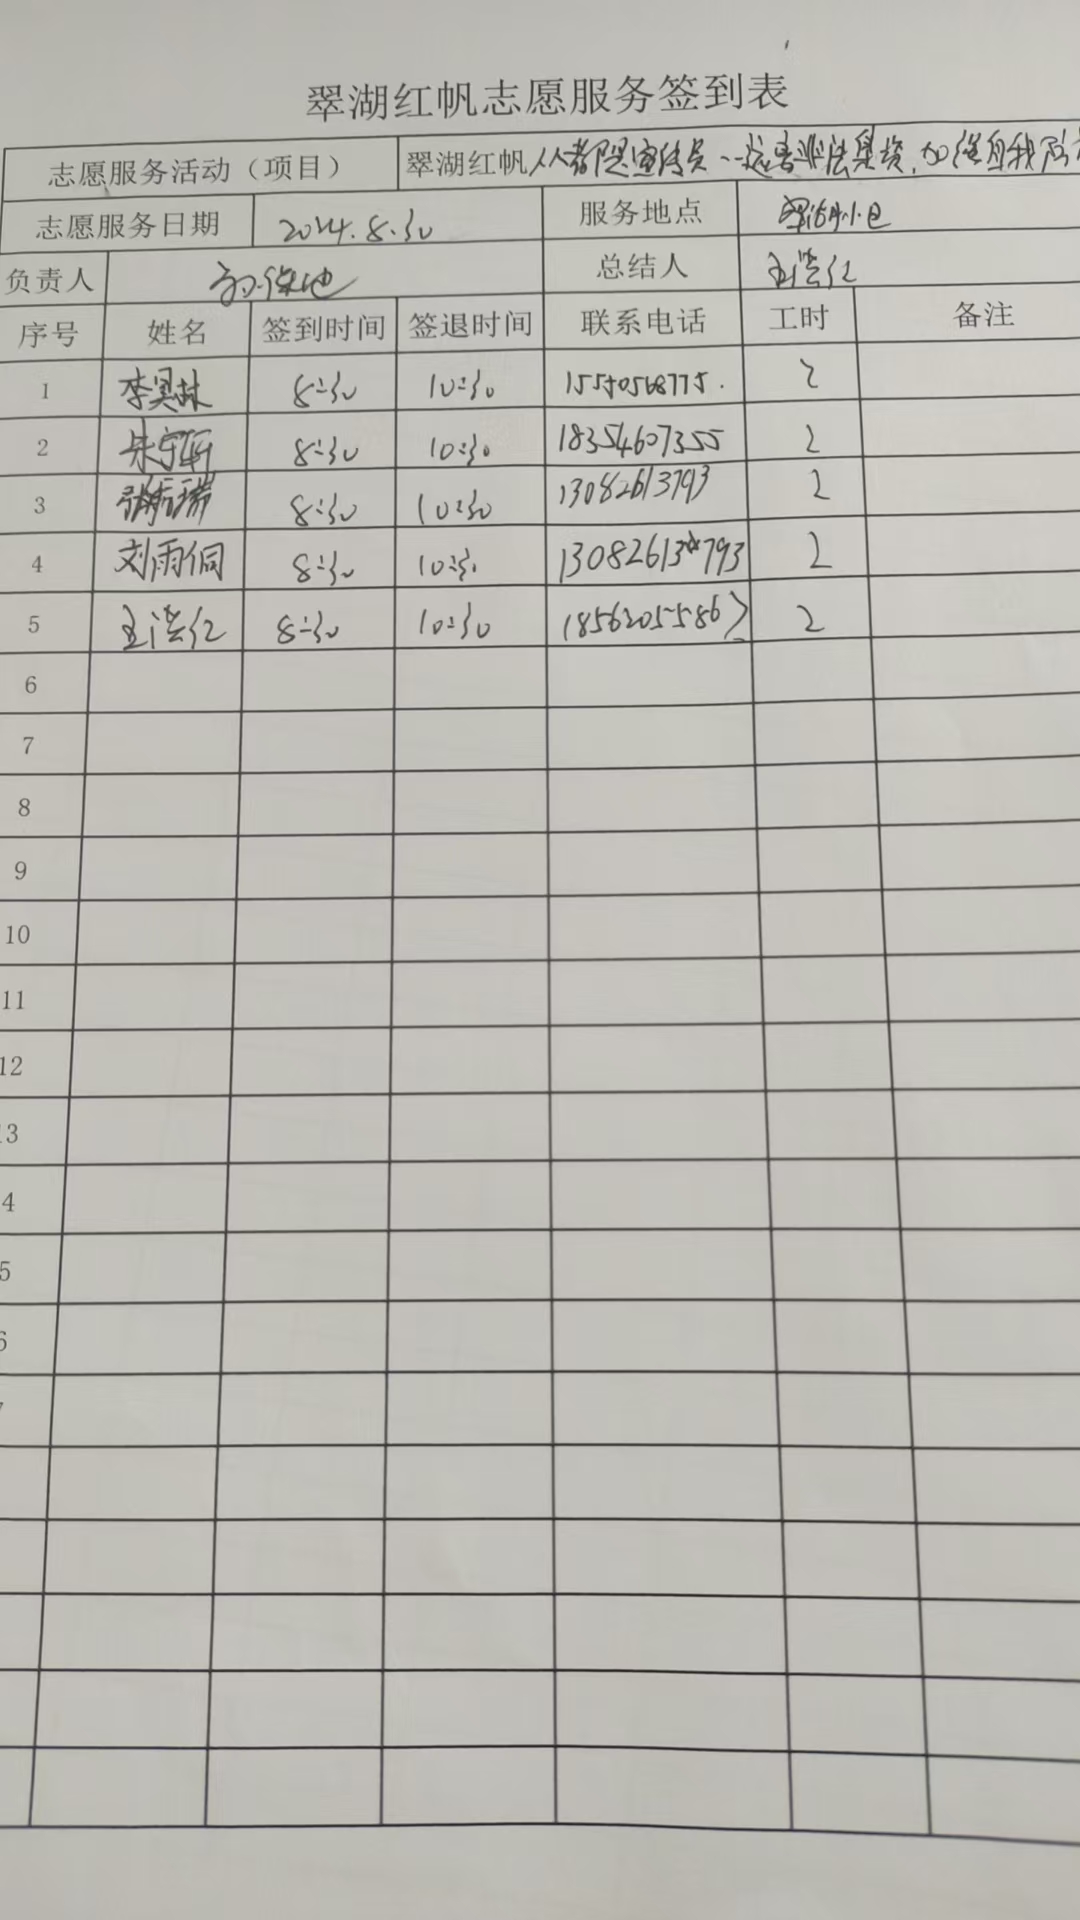 翠湖红帆志愿服务签到表
志愿服务活动（项目） 翠湖红帆人人都是宣传员--远离非法集资，加强自我防
志愿服务日期 2024.8.30 服务地点 翠湖小区
负责人 总结人 王浩仁
序号 姓名 签到时间 签退时间 联系电话 工时 备注
1 李昊林 8:30 10:30 2
2 8:30 10:30 18354607355 2
3 8:30 10:30 13082613793 2
4 刘雨侗 8:30 10:30 13082613793 2
5 王浩仁 8:30 10:30 18562055867 2
6
7
8
9
10
11
12
13
4
5
6
7